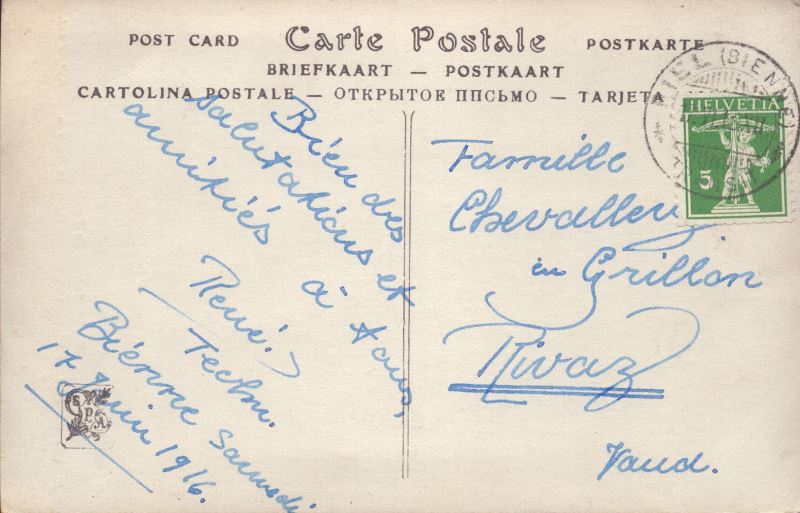 POST CARD Carte Postale POSTKARTE
BRIEFKAART — POSTKAART
CARTOLINA POSTALE — ОТКРЫТОЕ ПИСЬМО — TARJETA
BIEL (BIENNE)
HELVETIA
5
Bien des
salutations et
amitiés à tous,
René.
Techn.
Bienne Samedi
17 Juin 1916.
SPA
Famille
Chevalley
en Grillon
Rivaz
Vaud.